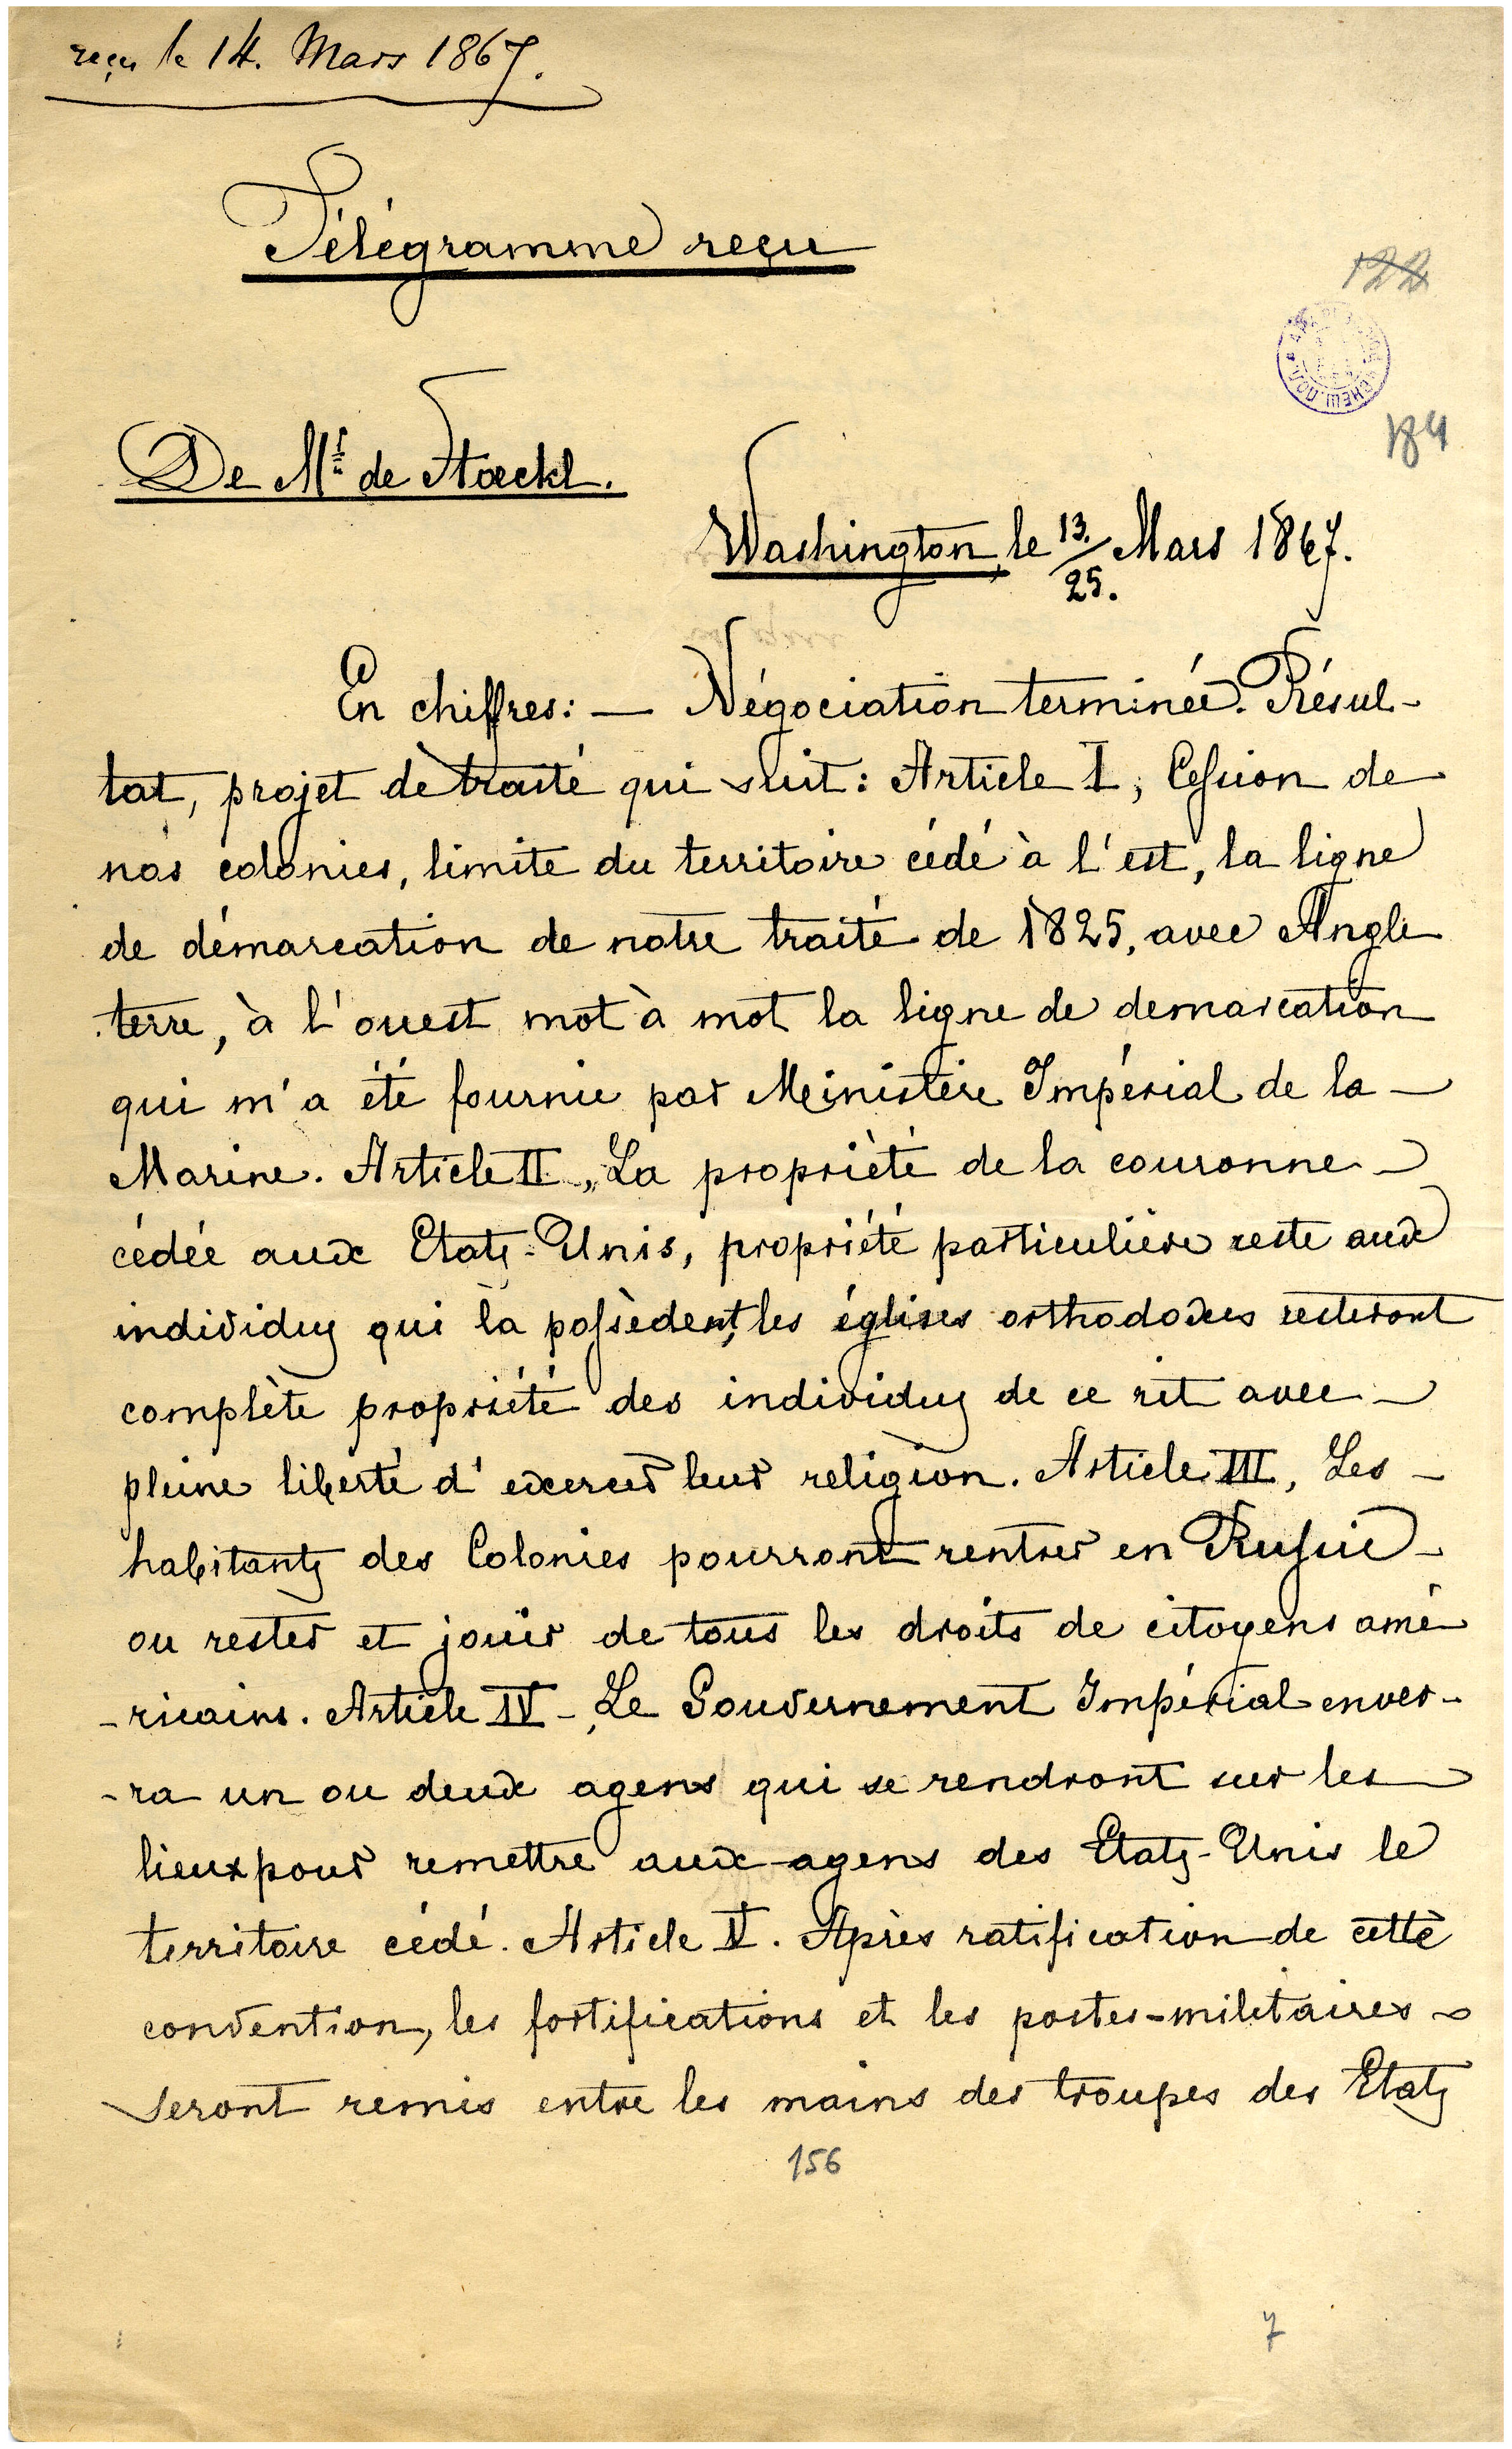 reçu le 14. Mars 1867.
Télégramme reçu
122
184
De Mr de Stoeckl.
Washington, le 13./25. Mars 1867.
En chiffres: — Négociation terminée. Résul-
tat, projet de traité qui suit: Article I, Cession de
nos colonies, limite du territoire cédé à l'est, la ligne
de démarcation de notre traité de 1825, avec Angle
terre, à l'ouest mot à mot la ligne de demarcation
qui m'a été fournie par Ministère Impérial de la —
Marine. Article II, La propriété de la couronne —
cédée aux Etats-Unis, propriété particulière reste aux
individus qui la possèdent, les églises orthodoxes resteront
complète propriété des individus de ce rit avec —
pleine liberté d'exercer leur religion. Article III, Les —
habitants des Colonies pourront rentrer en Russie —
ou rester et jouir de tous les droits de citoyens amé
-ricains. Article IV -, Le Gouvernement Impérial enver-
-ra un ou deux agens qui se rendront sur les
lieux pour remettre aux agens des Etats-Unis le
territoire cédé. Article V. Après ratification de cette
convention, les fortifications et les postes-militaires
seront remis entre les mains des troupes des Etats
156
7